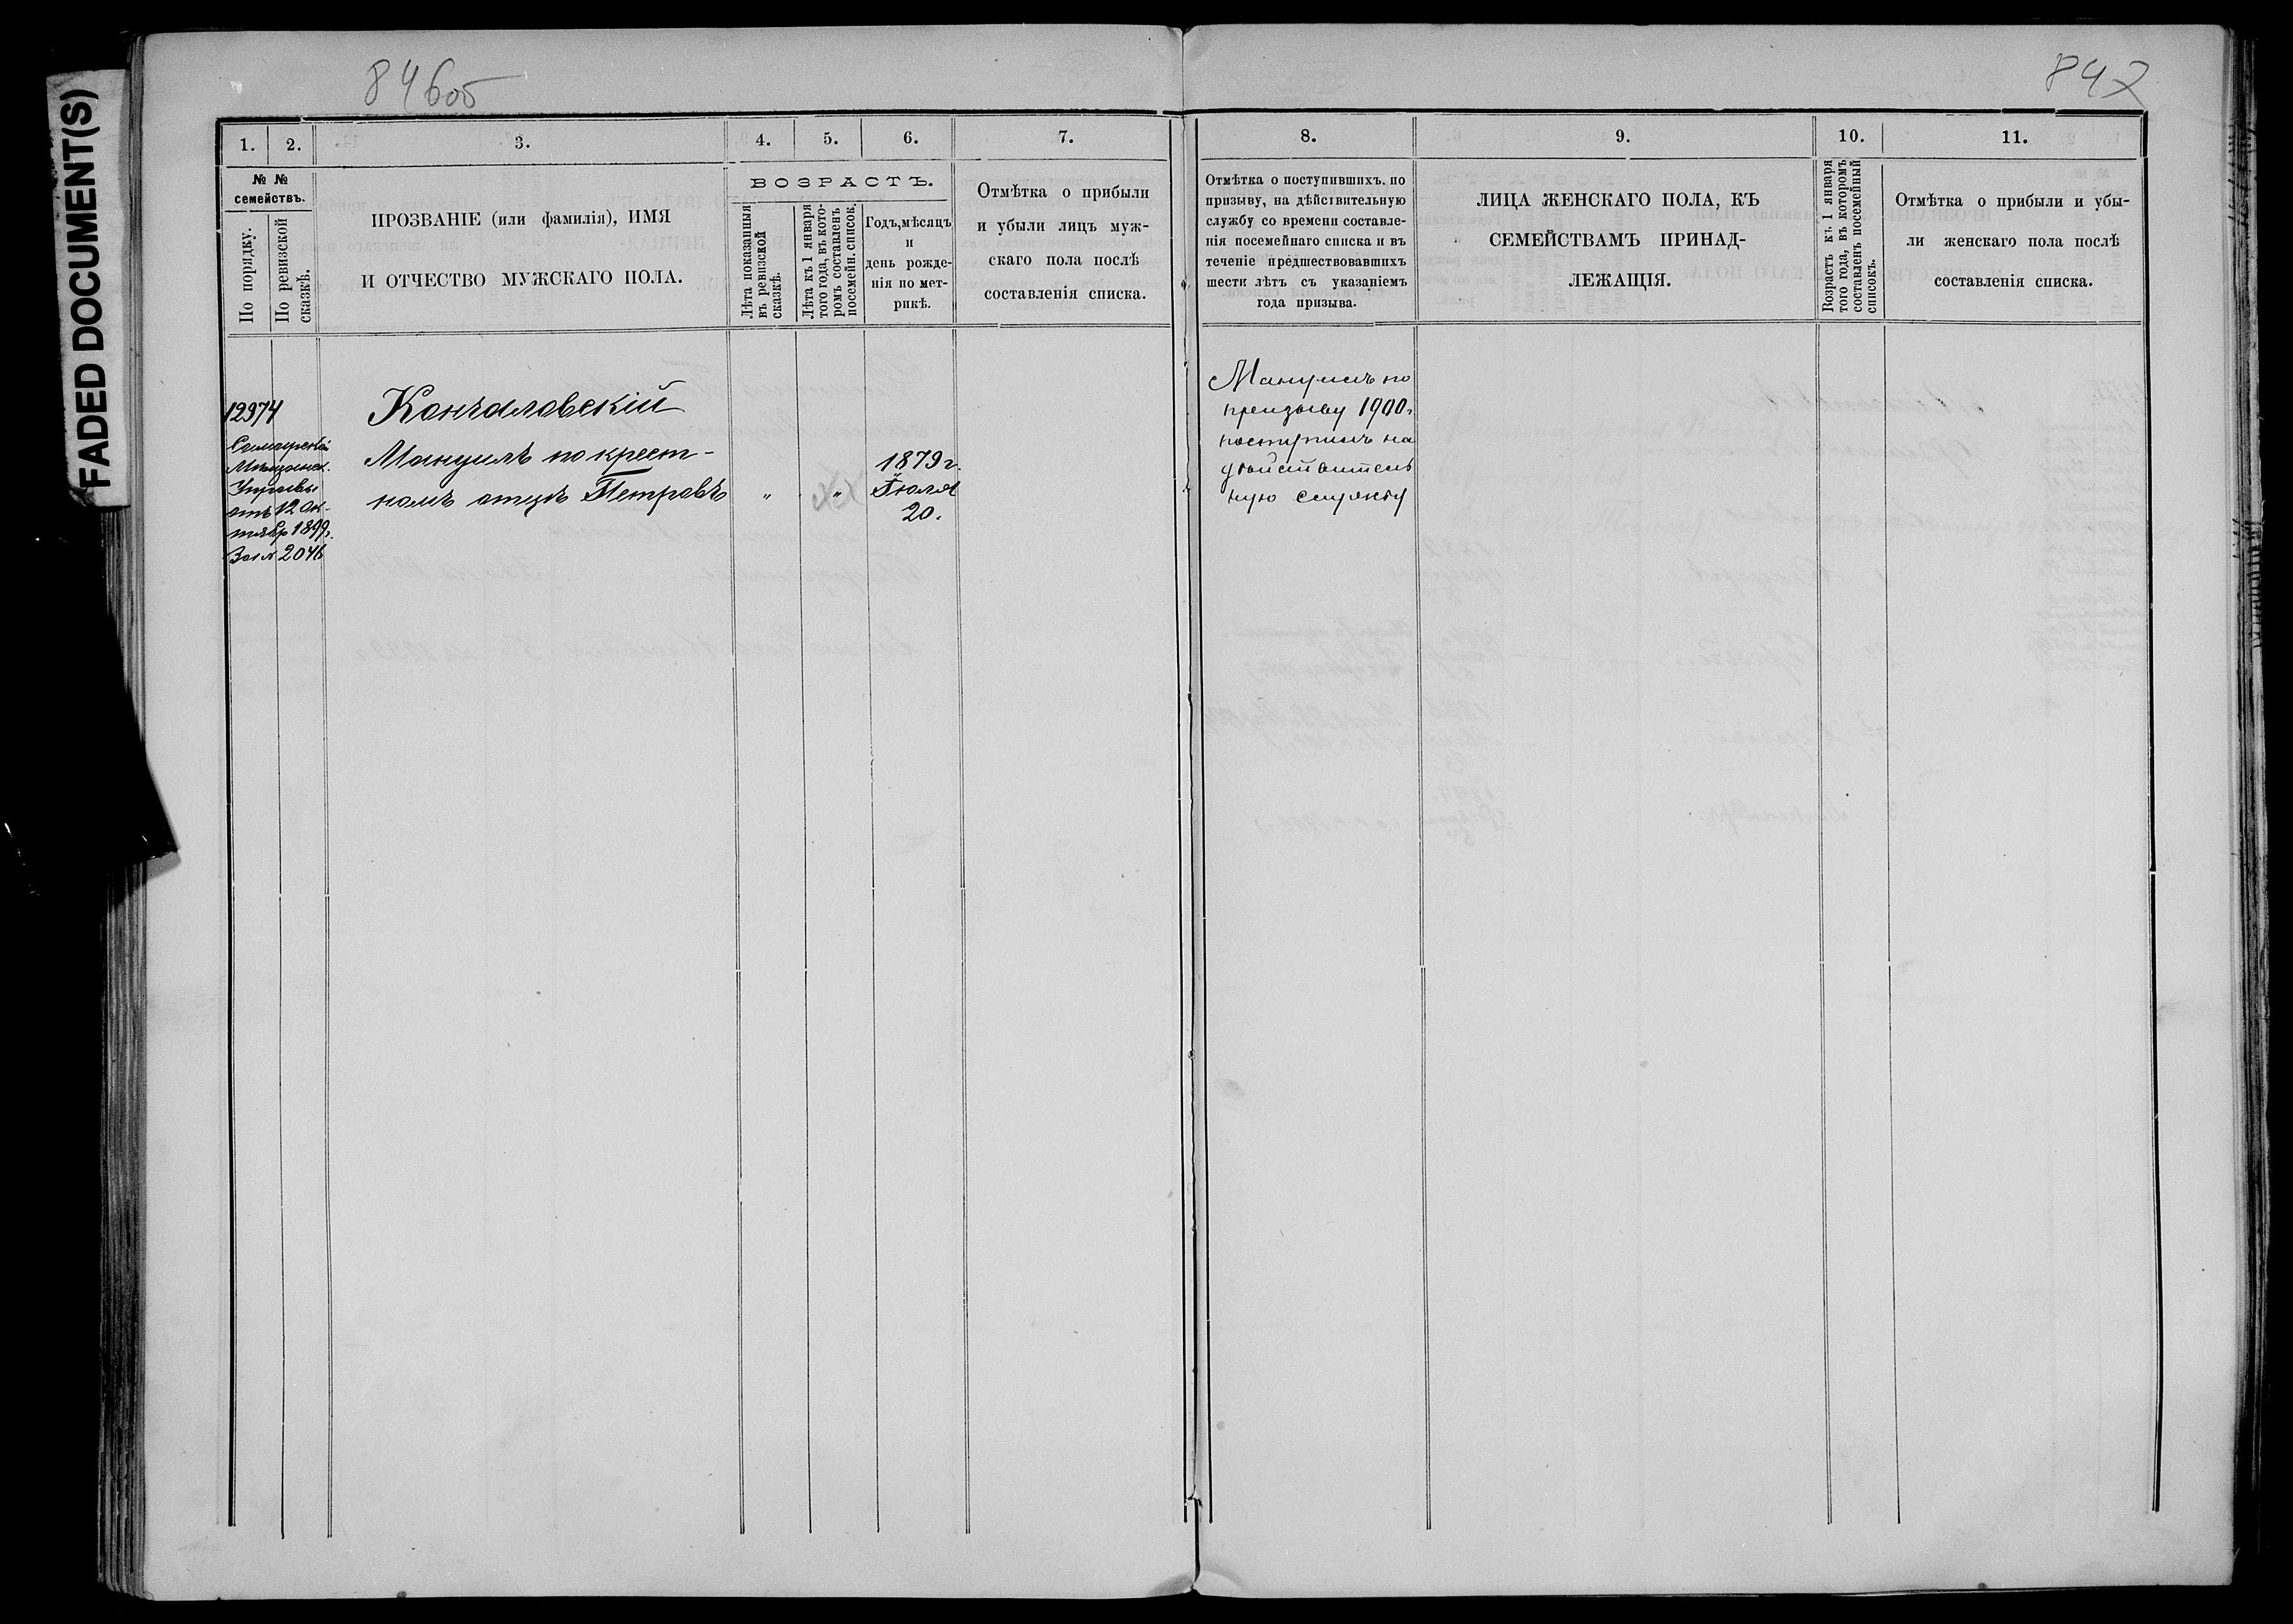 FADED DOCUMENT(S)
846об
847
1. 2. 3. 4. 5. 6. 7.
№ №
семействъ.
По порядку.
По ревизской
сказкѣ.
ПРОЗВАНІЕ (или фамилія), ИМЯ
И ОТЧЕСТВО МУЖСКАГО ПОЛА.
ВОЗРАСТЪ.
Лѣта показанныя
въ ревизской
сказкѣ.
Лѣта къ 1 января
того года, въ кото-
ромъ составленъ
посемейн. список.
Годъ, мѣсяцъ
и
день рожде-
нія по мет-
рикѣ.
Отмѣтка о прибыли
и убыли лицъ муж-
скаго пола послѣ
составленія списка.
12974
Мѣщанск.
Управы
отъ 12 Ок-
тябр 1899г.
За № 2046
Канъаловскій
Мануилъ по крест-
номъ отцѣ Петровъ
„ „
1879 г.
Іюля
20.
8. 9. 10. 11.
Отмѣтка о поступившихъ, по
призыву, на дѣйствительную
службу со времени составле-
нія посемейнаго списка и въ
теченіе предшествовавшихъ
шести лѣтъ съ указаніемъ
года призыва.
ЛИЦА ЖЕНСКАГО ПОЛА, КЪ
СЕМЕЙСТВАМЪ ПРИНАД-
ЛЕЖАЩІЯ.
Возрастъ къ 1 января
того года, въ которомъ
составленъ посемейный
списокъ.
Отмѣтка о прибыли и убы-
ли женскаго пола послѣ
составленія списка.
Мануилъ по
призыву 1900г.
поступилъ на
дѣйствитель
ную службу